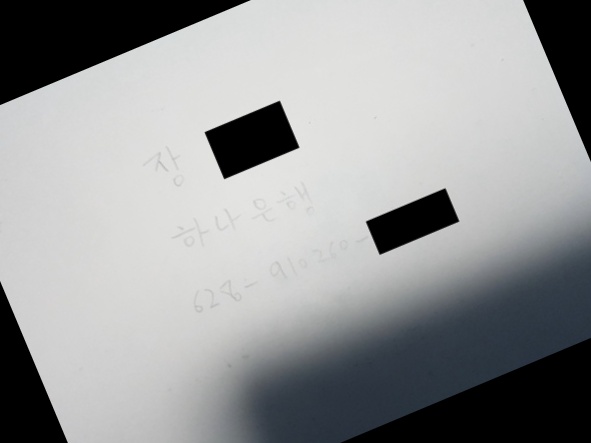 장
하나은행
628-910260-